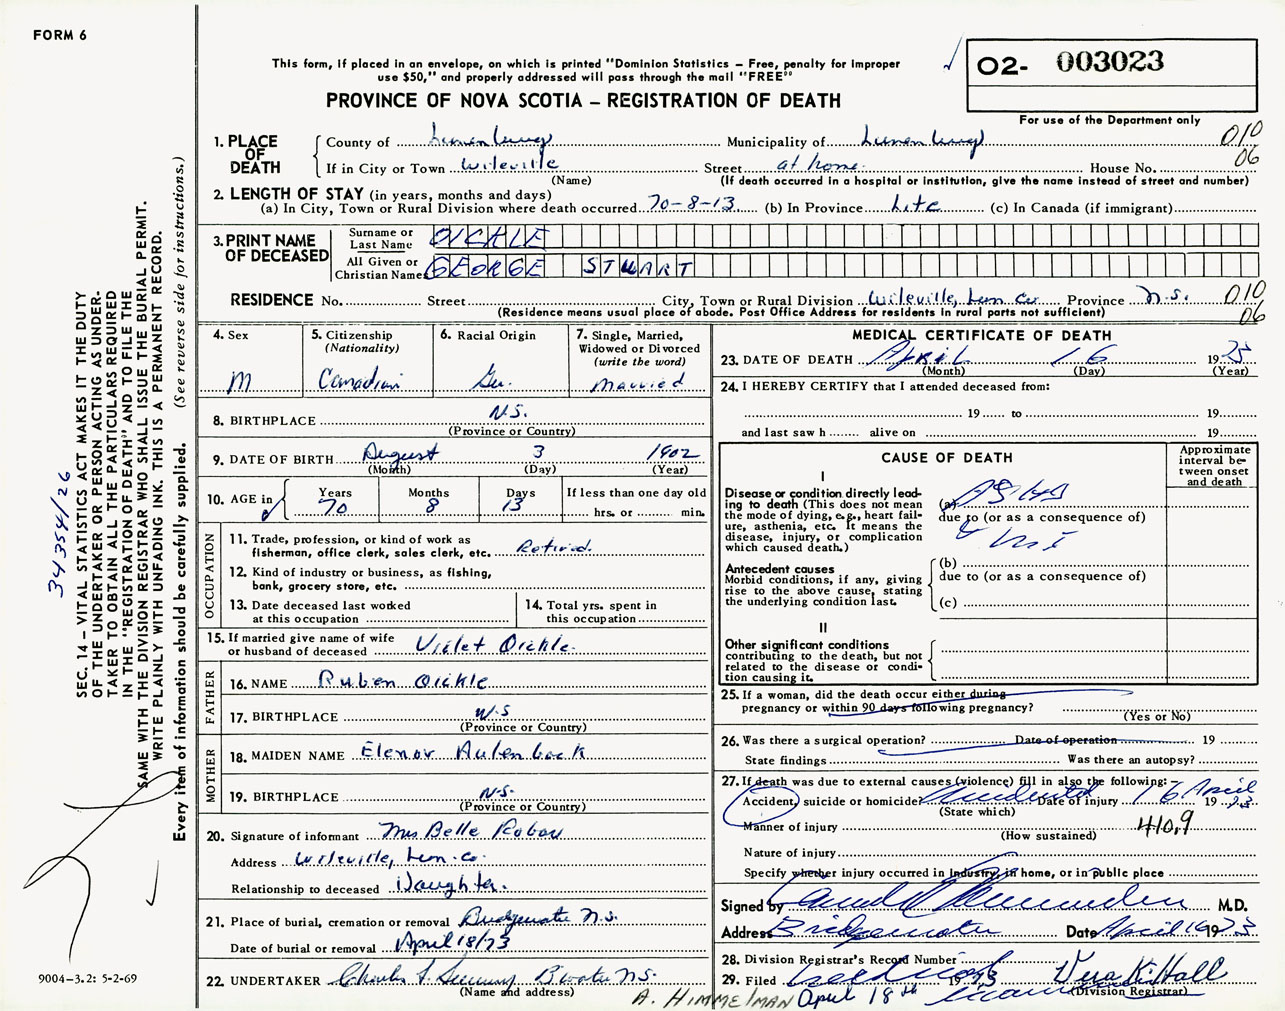 FORM 6
This form, if placed in an envelope, on which is printed "Dominion Statistics – Free, penalty for improper
use $50," and properly addressed will pass through the mail "FREE"
PROVINCE OF NOVA SCOTIA – REGISTRATION OF DEATH
O2- 003023
For use of the Department only
010
06
1. PLACE OF DEATH
County of Lunenburg Municipality of Lunenburg
If in City or Town Wileville Street at home House No.
(Name) (If death occurred in a hospital or institution, give the name instead of street and number)
2. LENGTH OF STAY (in years, months and days)
(a) In City, Town or Rural Division where death occurred 70-8-13 (b) In Province Life (c) In Canada (if immigrant)
3. PRINT NAME OF DECEASED
Surname or Last Name OICKLE
All Given or Christian Names GEORGE STUART
RESIDENCE No. Street City, Town or Rural Division Wileville, Lun. Co Province N.S. 010
(Residence means usual place of abode. Post Office Address for residents in rural parts not sufficient) 06
4. Sex M
5. Citizenship (Nationality) Canadian
6. Racial Origin Ger.
7. Single, Married, Widowed or Divorced (write the word) Married
8. BIRTHPLACE N.S.
(Province or Country)
9. DATE OF BIRTH August 3 1902
(Month) (Day) (Year)
10. AGE in Years 70 Months 8 Days 13 If less than one day old hrs. or min.
OCCUPATION
11. Trade, profession, or kind of work as fisherman, office clerk, sales clerk, etc. Retired.
12. Kind of industry or business, as fishing, bank, grocery store, etc.
13. Date deceased last worked at this occupation
14. Total yrs. spent in this occupation
15. If married give name of wife or husband of deceased Violet Oickle.
FATHER
16. NAME Ruben Oickle
17. BIRTHPLACE N.S
(Province or Country)
MOTHER
18. MAIDEN NAME Elenor Aulenback
19. BIRTHPLACE N.S.
(Province or Country)
20. Signature of informant Mrs Belle
Address Wileville, Lun. Co.
Relationship to deceased Daughter.
21. Place of burial, cremation or removal Bridgewater N.S.
Date of burial or removal April 18/73
22. UNDERTAKER Charles B'water N.S.
(Name and address)
A. HIMMELMAN
MEDICAL CERTIFICATE OF DEATH
23. DATE OF DEATH April 16 1973
(Month) (Day) (Year)
24. I HEREBY CERTIFY that I attended deceased from:
19 to 19
and last saw h alive on 19
CAUSE OF DEATH
Approximate interval between onset and death
I
Disease or condition directly leading to death (This does not mean the mode of dying, e.g., heart failure, asthenia, etc. It means the disease, injury, or complication which caused death.)
(a) ASHD
due to (or as a consequence of)
Antecedent causes
Morbid conditions, if any, giving rise to the above cause, stating the underlying condition last.
(b)
due to (or as a consequence of)
(c)
II
Other significant conditions
contributing to the death, but not related to the disease or condition causing it.
25. If a woman, did the death occur either during
pregnancy or within 90 days following pregnancy?
(Yes or No)
26. Was there a surgical operation? Date of operation 19
State findings Was there an autopsy?
27. If death was due to external causes (violence) fill in also the following:–
Accident, suicide or homicide? Date of injury 16 April 1973
(State which)
Manner of injury 410.9
(How sustained)
Nature of injury
Specify whether injury occurred in industry, in home, or in public place
Signed by M.D.
Address Bridgewater Date April 16 1973
28. Division Registrar's Record Number
29. Filed 1973 Vera K. Hall
April 18th (Division Registrar)
SEC. 14 – VITAL STATISTICS ACT MAKES IT THE DUTY
OF THE UNDERTAKER OR PERSON ACTING AS UNDER-
TAKER TO OBTAIN ALL THE PARTICULARS REQUIRED
IN THE "REGISTRATION OF DEATH" AND TO FILE THE
SAME WITH THE DIVISION REGISTRAR WHO SHALL ISSUE THE BURIAL PERMIT.
WRITE PLAINLY WITH UNFADING INK. THIS IS A PERMANENT RECORD.
Every item of information should be carefully supplied. (See reverse side for instructions.)
34354/26
9004-3.2: 5-2-69